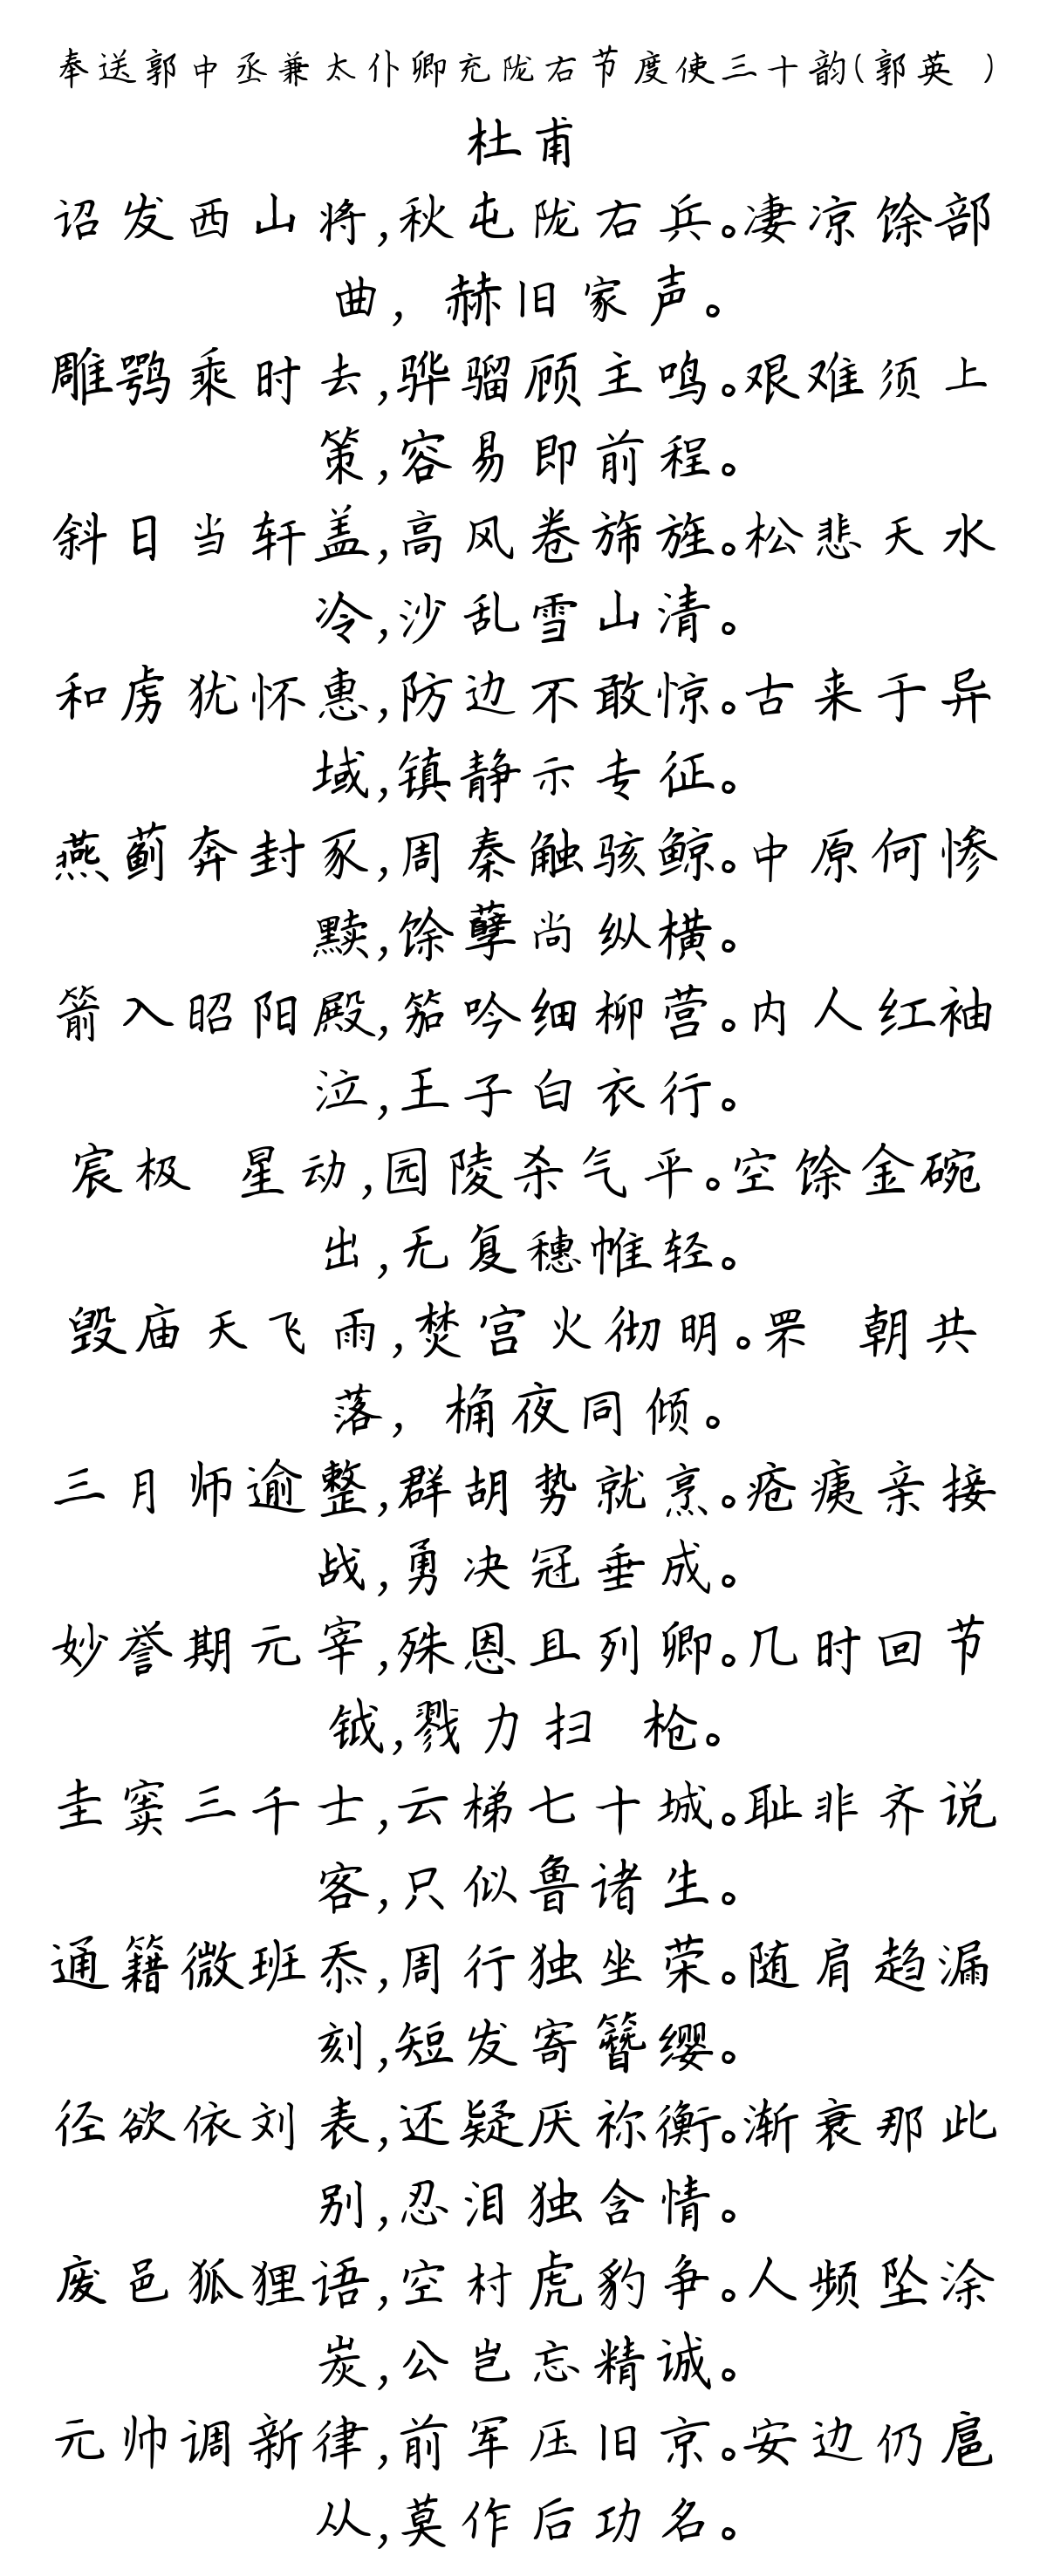 奉送郭中丞兼太仆卿充陇右节度使三十韵(郭英 )
杜甫
诏发西山将,秋屯陇右兵。凄凉馀部
曲, 赫旧家声。
雕鹗乘时去,骅骝顾主鸣。艰难须上
策,容易即前程。
斜日当轩盖,高风卷旆旌。松悲天水
冷,沙乱雪山清。
和虏犹怀惠,防边不敢惊。古来于异
域,镇静示专征。
燕蓟奔封豕,周秦触骇鲸。中原何惨
黩,馀孽尚纵横。
箭入昭阳殿,笳吟细柳营。内人红袖
泣,王子白衣行。
宸极 星动,园陵杀气平。空馀金碗
出,无复穗帷轻。
毁庙天飞雨,焚宫火彻明。罘 朝共
落, 桷夜同倾。
三月师逾整,群胡势就烹。疮痍亲接
战,勇决冠垂成。
妙誉期元宰,殊恩且列卿。几时回节
钺,戮力扫 枪。
圭窦三千士,云梯七十城。耻非齐说
客,只似鲁诸生。
通籍微班忝,周行独坐荣。随肩趋漏
刻,短发寄簪缨。
径欲依刘表,还疑厌祢衡。渐衰那此
别,忍泪独含情。
废邑狐狸语,空村虎豹争。人频坠涂
炭,公岂忘精诚。
元帅调新律,前军压旧京。安边仍扈
从,莫作后功名。